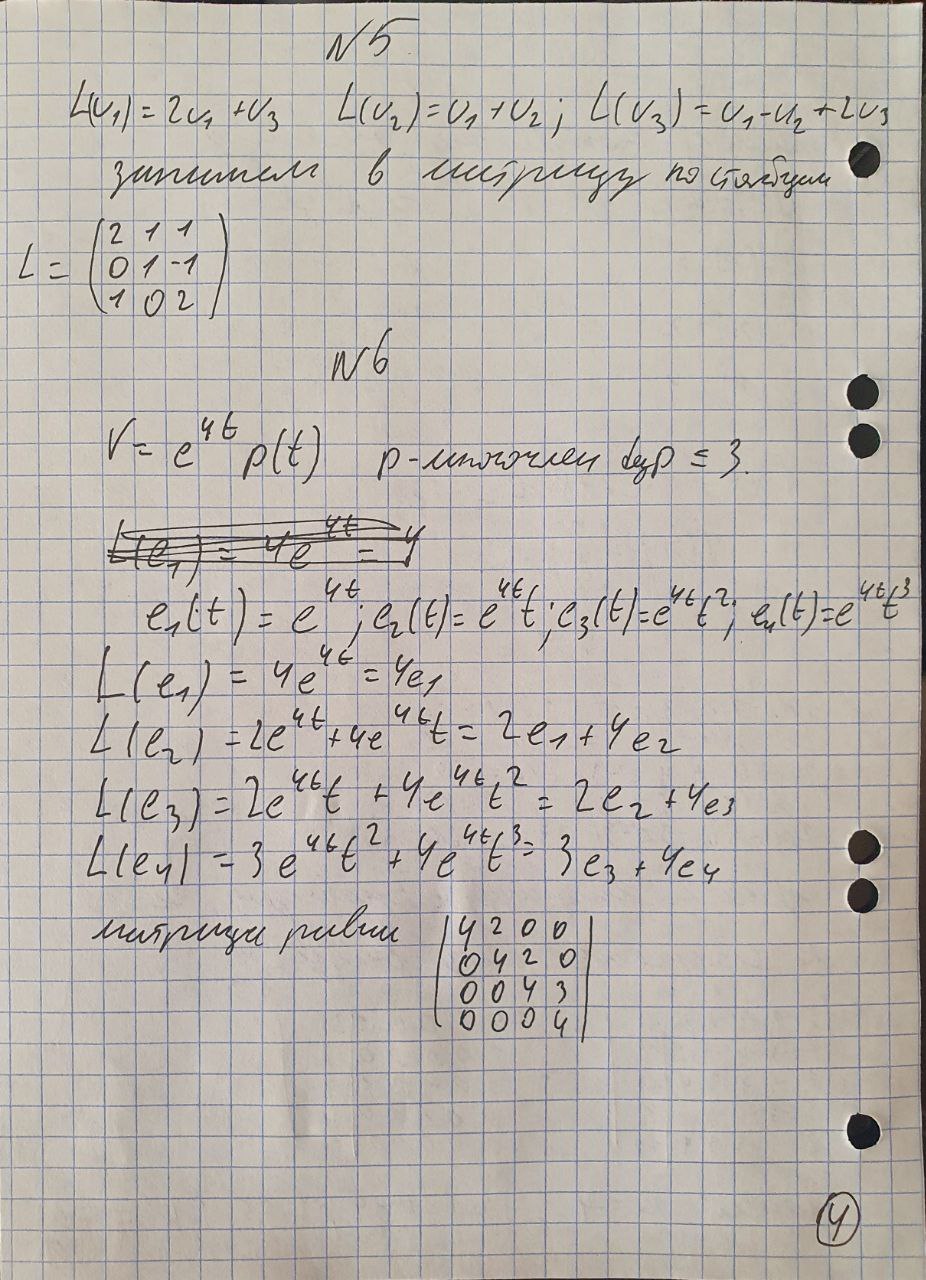 N5
L(v₁) = 2v₁ + v₃ L(v₂) = v₁ + v₂; L(v₃) = v₁ - v₂ + 2v₃
запишем в матрицу по столбцам
L = (2 1 1
0 1 -1
1 0 2)
N6
V = e^{4t} p(t) p - многочлен deg p ≤ 3.
L(e₁) = 4e^{4t} = 4
e₁(t) = e^{4t}; e₂(t) = e^{4t}t; e₃(t) = e^{4t}t²; e₄(t) = e^{4t}t³
L(e₁) = 4e^{4t} = 4e₁
L(e₂) = 2e^{4t} + 4e^{4t}t = 2e₁ + 4e₂
L(e₃) = 2e^{4t}t + 4e^{4t}t² = 2e₂ + 4e₃
L(e₄) = 3e^{4t}t² + 4e^{4t}t³ = 3e₃ + 4e₄
матрица равна (4 2 0 0
0 4 2 0
0 0 4 3
0 0 0 4)
4